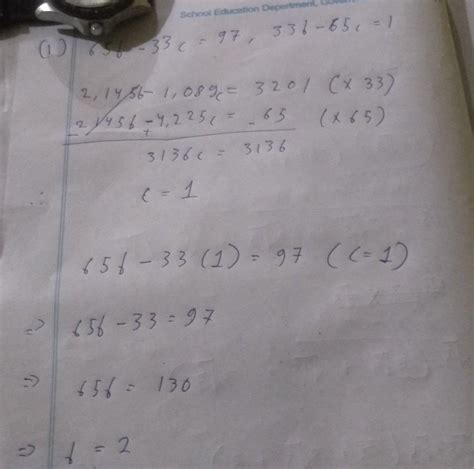 School Education Department, Govern
(1) 65b - 33c = 97, 33b - 65c = 1
2,145b - 1,089c = 3201 (× 33)
- 2145b - 4,225c = - 65 (× 65)
+
3136c = 3136
∴ c = 1
65b - 33 (1) = 97 (c = 1)
⇒ 65b - 33 = 97
⇒ 65b = 130
⇒ b = 2